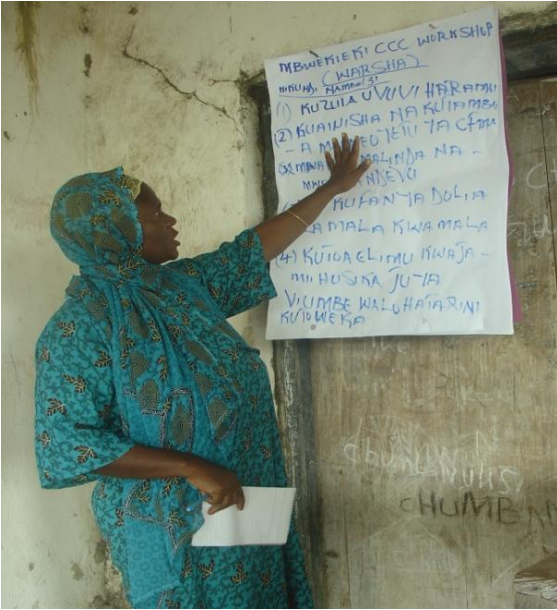 MBWEKIEKI CCC WORKSHOP
(WARSHA)
KIKUNDI NAMBA
(1) KUZUIA UVUVI HARAMU
(2) KUAINISHA NA KUTAMBU
- A MAENEO YETU YA
NA -
KUFANYA DOLIA
MALA KWA MALA
(4) KUTOA ELIMU KWA JA -
MII HUSIKA JU YA
VIUMBE WALUHATARINI
KUTOWEKA
CHUMBA